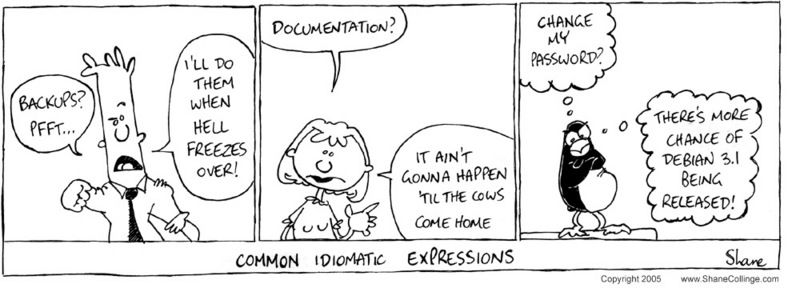 BACKUPS?
PFFT...
I'LL DO
THEM
WHEN
HELL
FREEZES
OVER!
DOCUMENTATION?
IT AIN'T
GONNA HAPPEN
'TIL THE COWS
COME HOME
CHANGE
MY
PASSWORD?
THERE'S MORE
CHANCE OF
DEBIAN 3.1
BEING
RELEASED!
COMMON IDIOMATIC EXPRESSIONS
Shane
Copyright 2005 www.ShaneCollinge.com